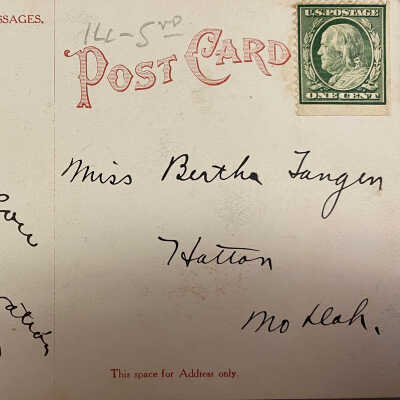 SSAGES,
Ill-5rd
POST CARD
U.S. POSTAGE
ONE CENT
Miss Bertha Tangen
Hatton
No Dak.
This space for Address only.